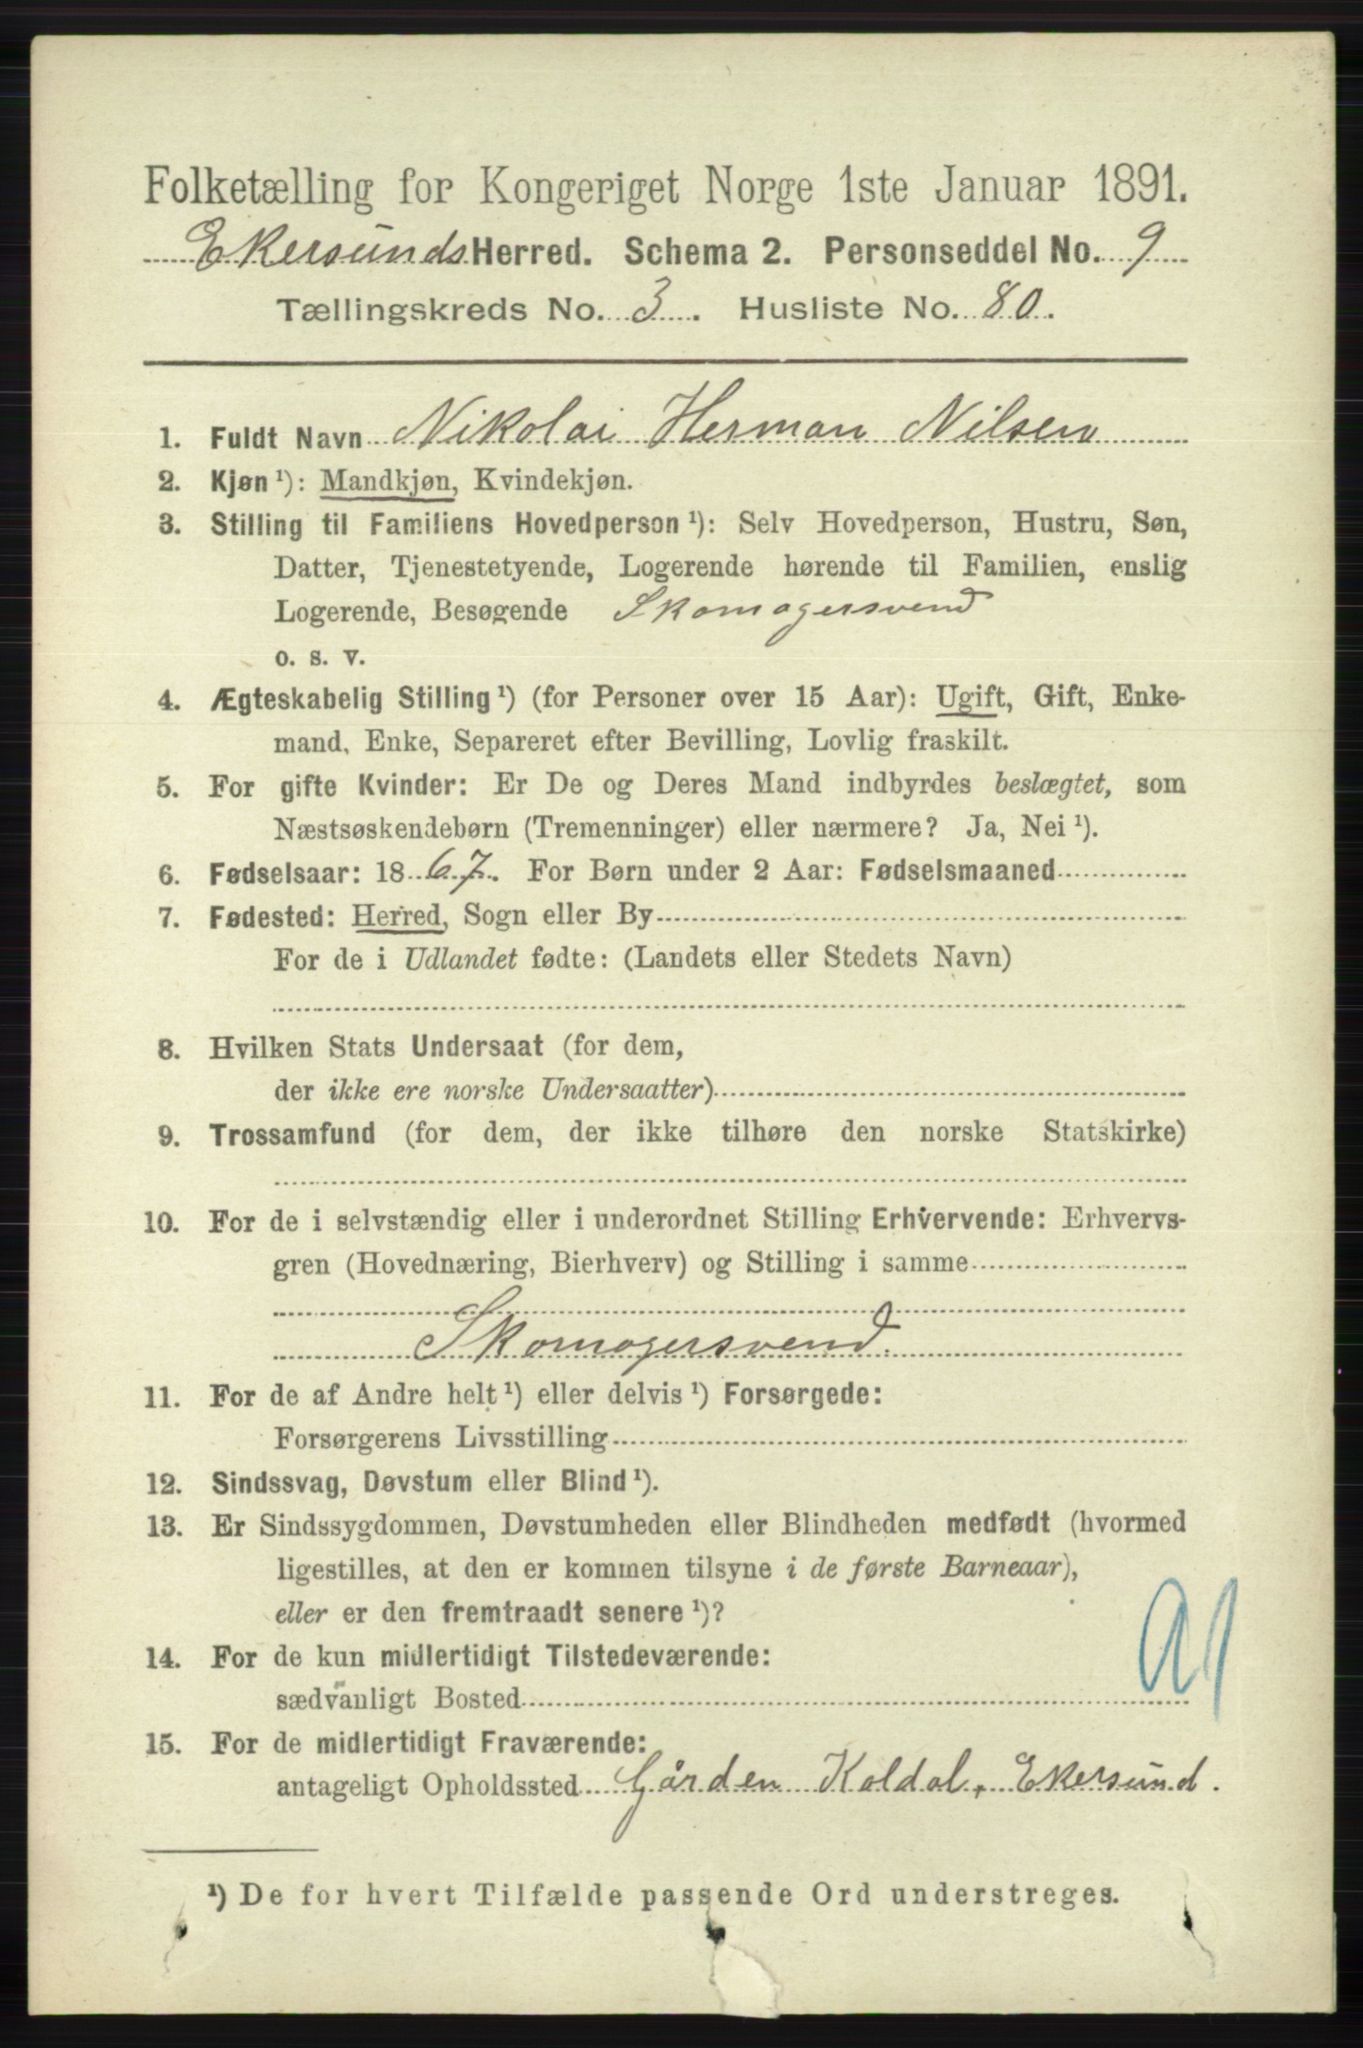 Folketælling for Kongeriget Norge 1ste Januar 1891.
Ekersunds Herred. Schema 2. Personseddel No. 9
Tællingskreds No. 3. Husliste No. 80.
1. Fuldt Navn Nikolai Herman Nilsen
2. Kjøn ¹): Mandkjøn, Kvindekjøn.
3. Stilling til Familiens Hovedperson ¹): Selv Hovedperson, Hustru, Søn,
Datter, Tjenestetyende, Logerende hørende til Familien, enslig
Logerende, Besøgende Skomagersvend
o. s. v.
4. Ægteskabelig Stilling ¹) (for Personer over 15 Aar): Ugift, Gift, Enke-
mand, Enke, Separeret efter Bevilling, Lovlig fraskilt.
5. For gifte Kvinder: Er De og Deres Mand indbyrdes beslægtet, som
Næstsøskendebørn (Tremenninger) eller nærmere? Ja, Nei ¹).
6. Fødselsaar: 1867. For Børn under 2 Aar: Fødselsmaaned
7. Fødested: Herred, Sogn eller By
For de i Udlandet fødte: (Landets eller Stedets Navn)
8. Hvilken Stats Undersaat (for dem,
der ikke ere norske Undersaatter)
9. Trossamfund (for dem, der ikke tilhøre den norske Statskirke)
10. For de i selvstændig eller i underordnet Stilling Erhvervende: Erhvervs-
gren (Hovednæring, Bierhverv) og Stilling i samme
Skomagersvend.
11. For de af Andre helt ¹) eller delvis ¹) Forsørgede:
Forsørgerens Livsstilling
12. Sindssvag, Døvstum eller Blind ¹).
13. Er Sindssygdommen, Døvstumheden eller Blindheden medfødt (hvormed
ligestilles, at den er kommen tilsyne i de første Barneaar),
eller er den fremtraadt senere ¹)?
14. For de kun midlertidigt Tilstedeværende:
sædvanligt Bosted
15. For de midlertidigt Fraværende:
antageligt Opholdssted Gården Koldal, Ekersund.
¹) De for hvert Tilfælde passende Ord understreges.